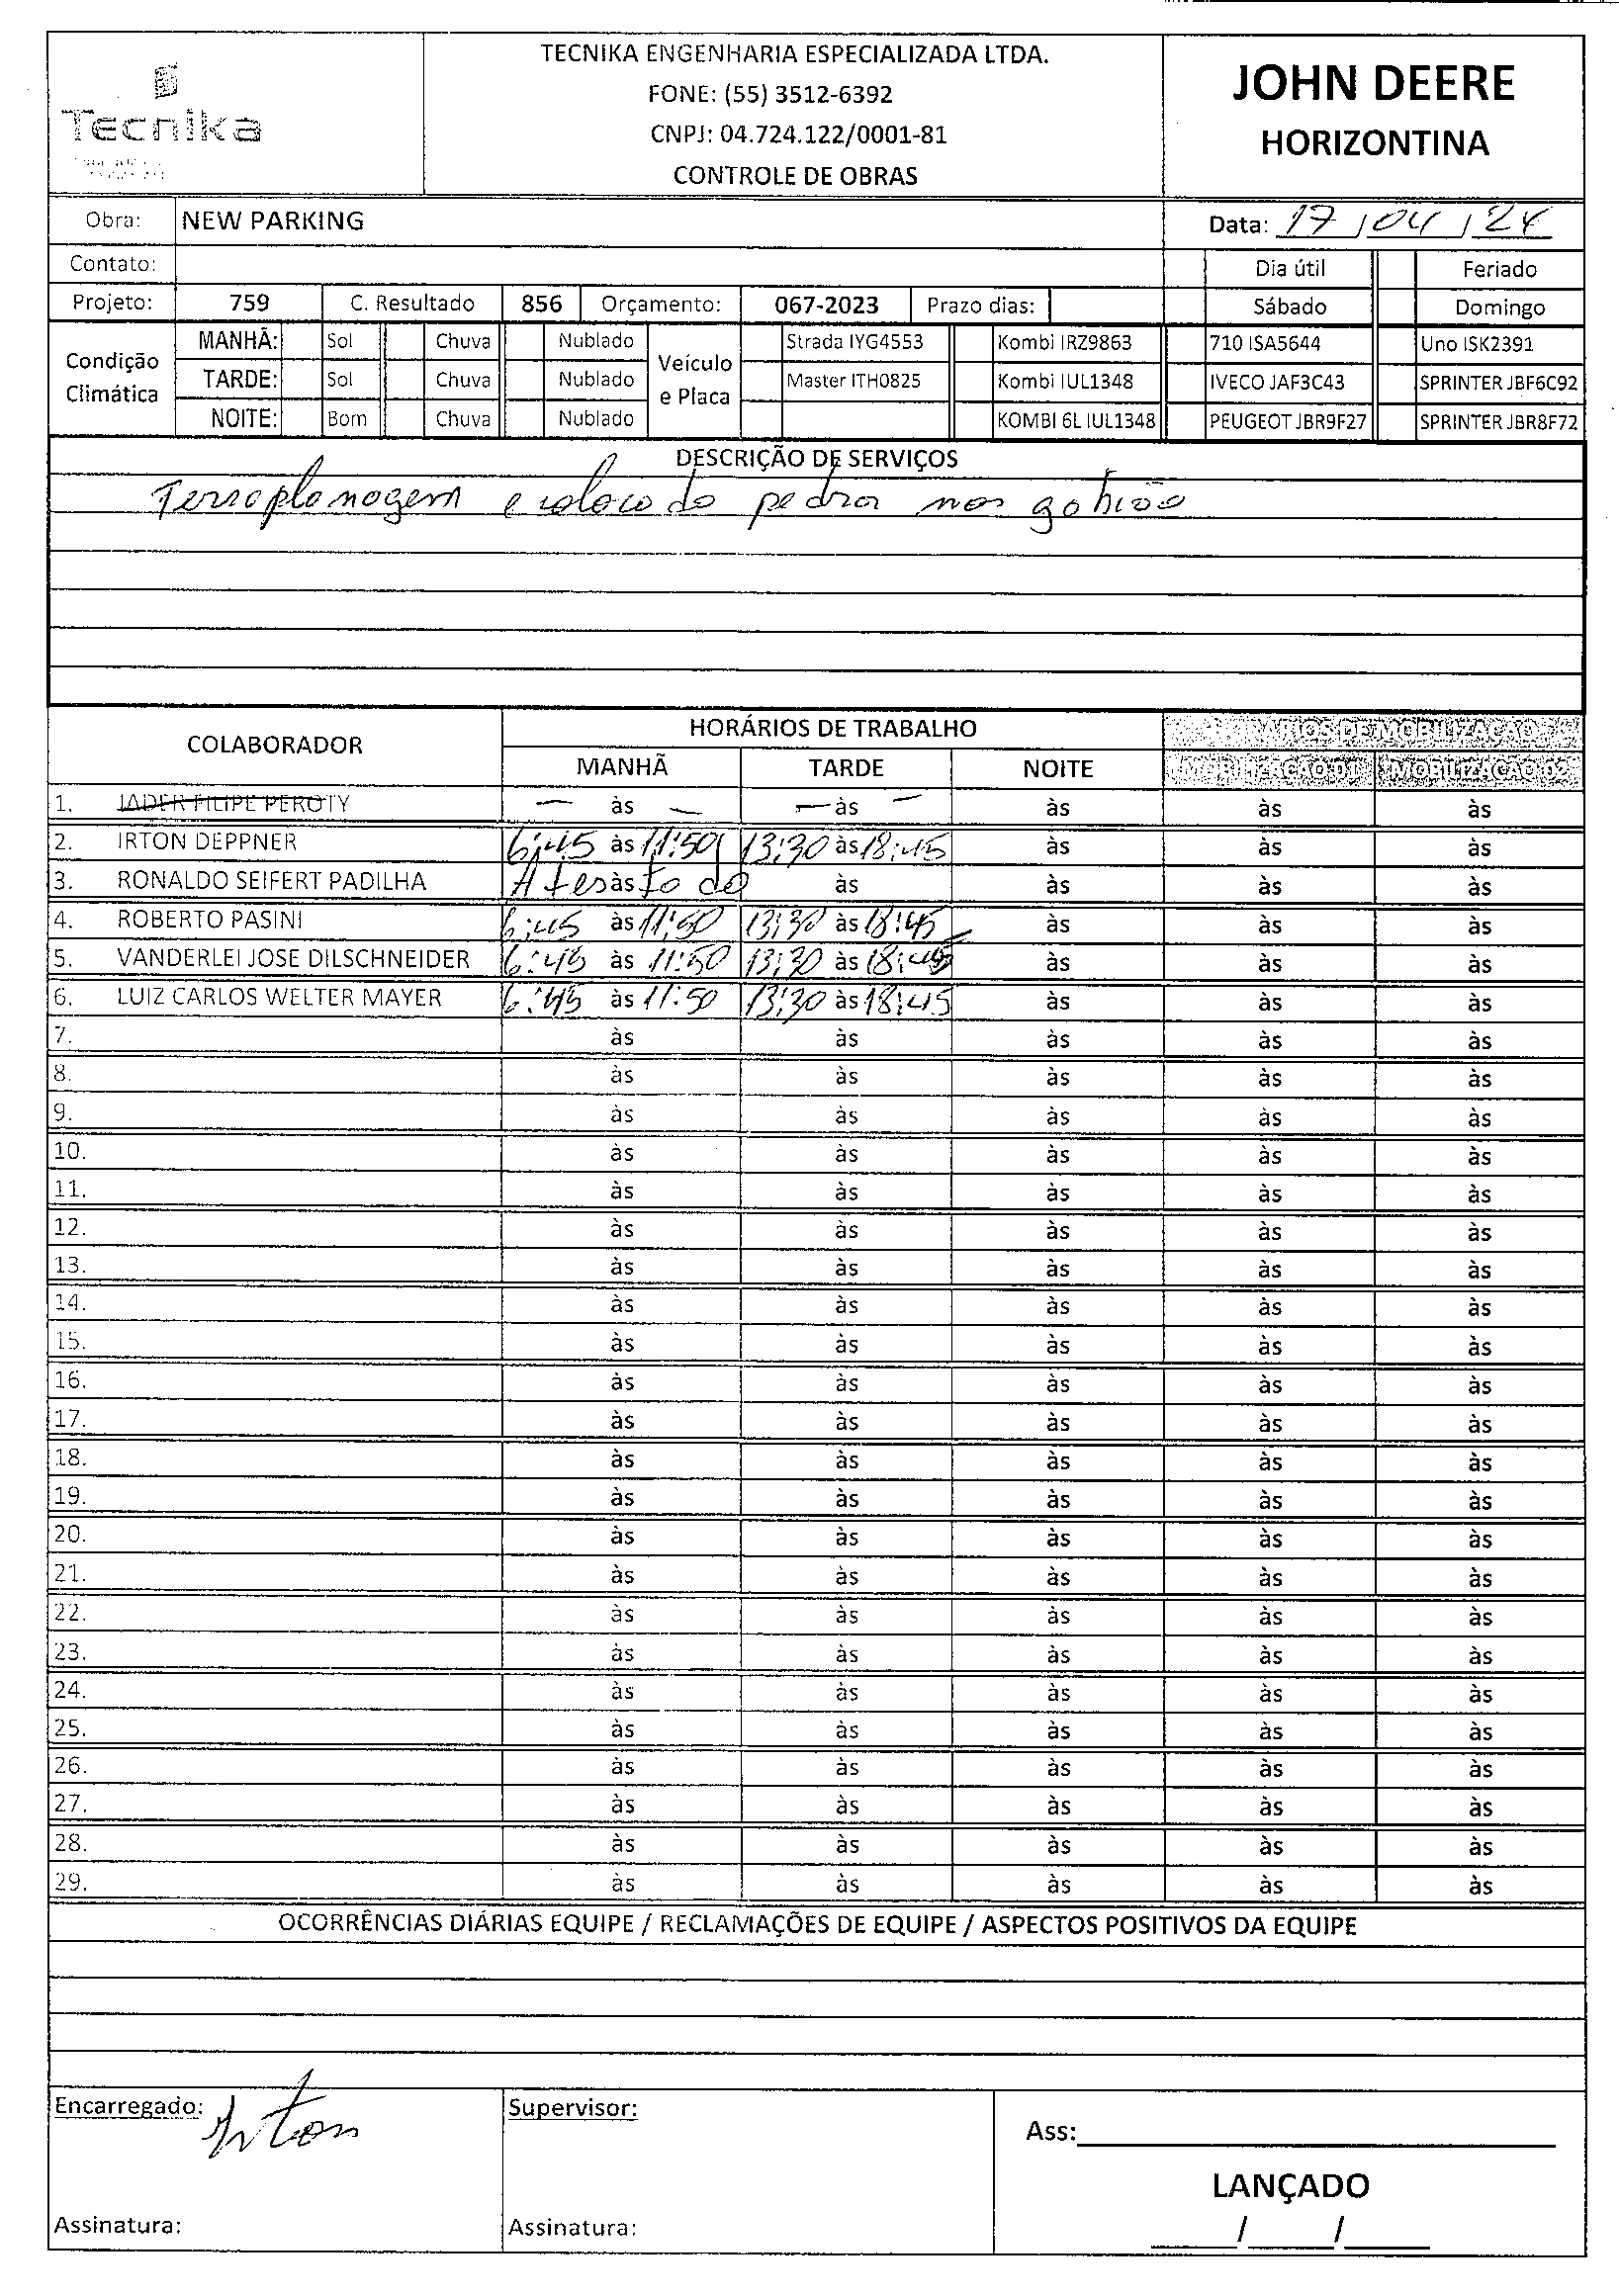 Tecnika
TECNIKA ENGENHARIA ESPECIALIZADA LTDA.
FONE: (55) 3512-6392
CNPJ: 04.724.122/0001-81
CONTROLE DE OBRAS
JOHN DEERE
HORIZONTINA
Obra: NEW PARKING Data: 17/04/24
Contato: Dia útil Feriado
Projeto: 759 C. Resultado 856 Orçamento: 067-2023 Prazo dias: Sábado Domingo
Condição Climática Veículo e Placa
MANHÃ: Sol Chuva Nublado Strada IYG4553 Kombi IRZ9863 710 ISA5644 Uno ISK2391
TARDE: Sol Chuva Nublado Master ITH0825 Kombi IUL1348 IVECO JAF3C43 SPRINTER JBF6C92
NOITE: Bom Chuva Nublado KOMBI 6L IUL1348 PEUGEOT JBR9F27 SPRINTER JBR8F72
DESCRIÇÃO DE SERVIÇOS
Terraplanagem e colocado pedra nos gabião
COLABORADOR HORÁRIOS DE TRABALHO HORÁRIOS DE MOBILIZAÇÃO
MANHÃ TARDE NOITE MOBILIZAÇÃO 01 MOBILIZAÇÃO 02
1. JADER FILIPE PEROTY — às — — às — às às às
2. IRTON DEPPNER 6:45 às 11:50 13:30 às 18:45 às às às
3. RONALDO SEIFERT PADILHA Atestado às às às às às
4. ROBERTO PASINI 6:45 às 11:50 13:30 às 18:45 às às às
5. VANDERLEI JOSE DILSCHNEIDER 6:45 às 11:50 13:30 às 18:45 às às às
6. LUIZ CARLOS WELTER MAYER 6:45 às 11:50 13:30 às 18:45 às às às
7. às às às às às
8. às às às às às
9. às às às às às
10. às às às às às
11. às às às às às
12. às às às às às
13. às às às às às
14. às às às às às
15. às às às às às
16. às às às às às
17. às às às às às
18. às às às às às
19. às às às às às
20. às às às às às
21. às às às às às
22. às às às às às
23. às às às às às
24. às às às às às
25. às às às às às
26. às às às às às
27. às às às às às
28. às às às às às
29. às às às às às
OCORRÊNCIAS DIÁRIAS EQUIPE / RECLAMAÇÕES DE EQUIPE / ASPECTOS POSITIVOS DA EQUIPE
Encarregado: Irton Supervisor: Ass:
LANÇADO
Assinatura: Assinatura: / /